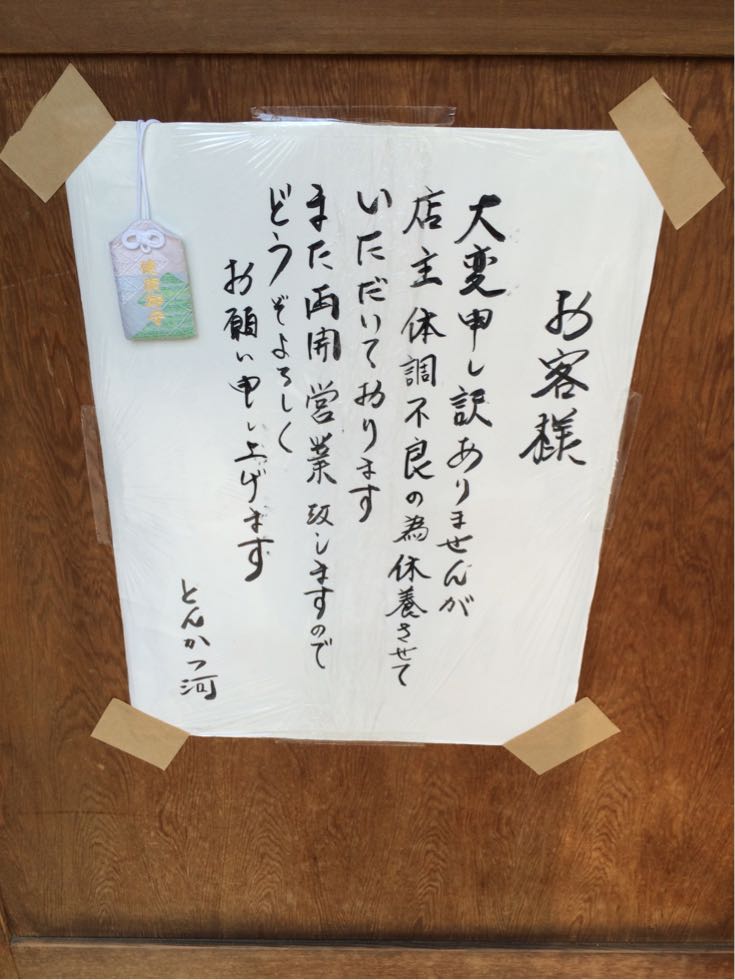 お客様
大変申し訳ありませんが
店主体調不良の為休養させて
いただいております
また再開営業致しますので
どうぞよろしく
お願い申し上げます
とんかつ河